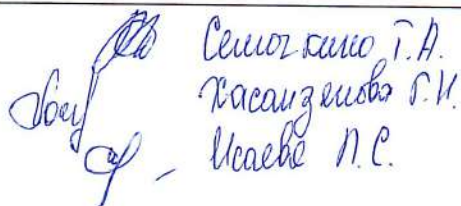 Семочкина Т.А.
Хасанзянова Г.Н.
Исаева Л.С.